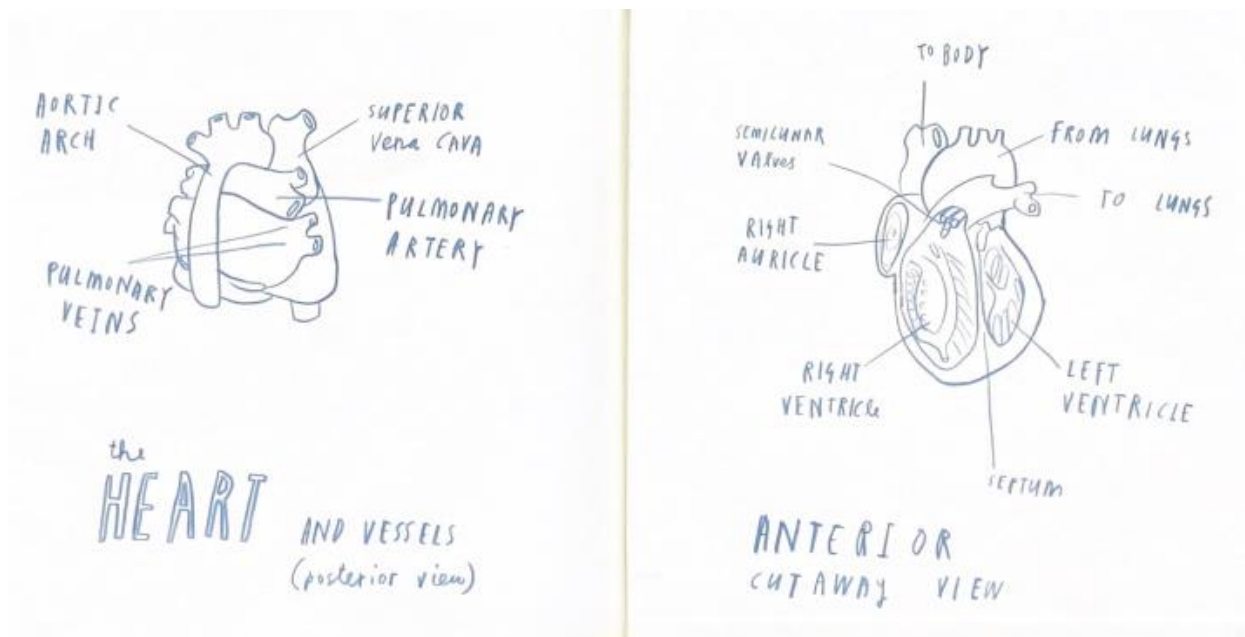 AORTIC
ARCH
SUPERIOR
Vena CAVA
PULMONARY
ARTERY
PULMONARY
VEINS
the
HEART
AND VESSELS
(posterior view)
TO BODY
SEMILUNAR
VAlves
FROM LUNGS
TO LUNGS
RIGHT
AURICLE
RIGHT
VENTRICLe
LEFT
VENTRICLE
SEPTUM
ANTERIOR
CUTAWAY VIEW